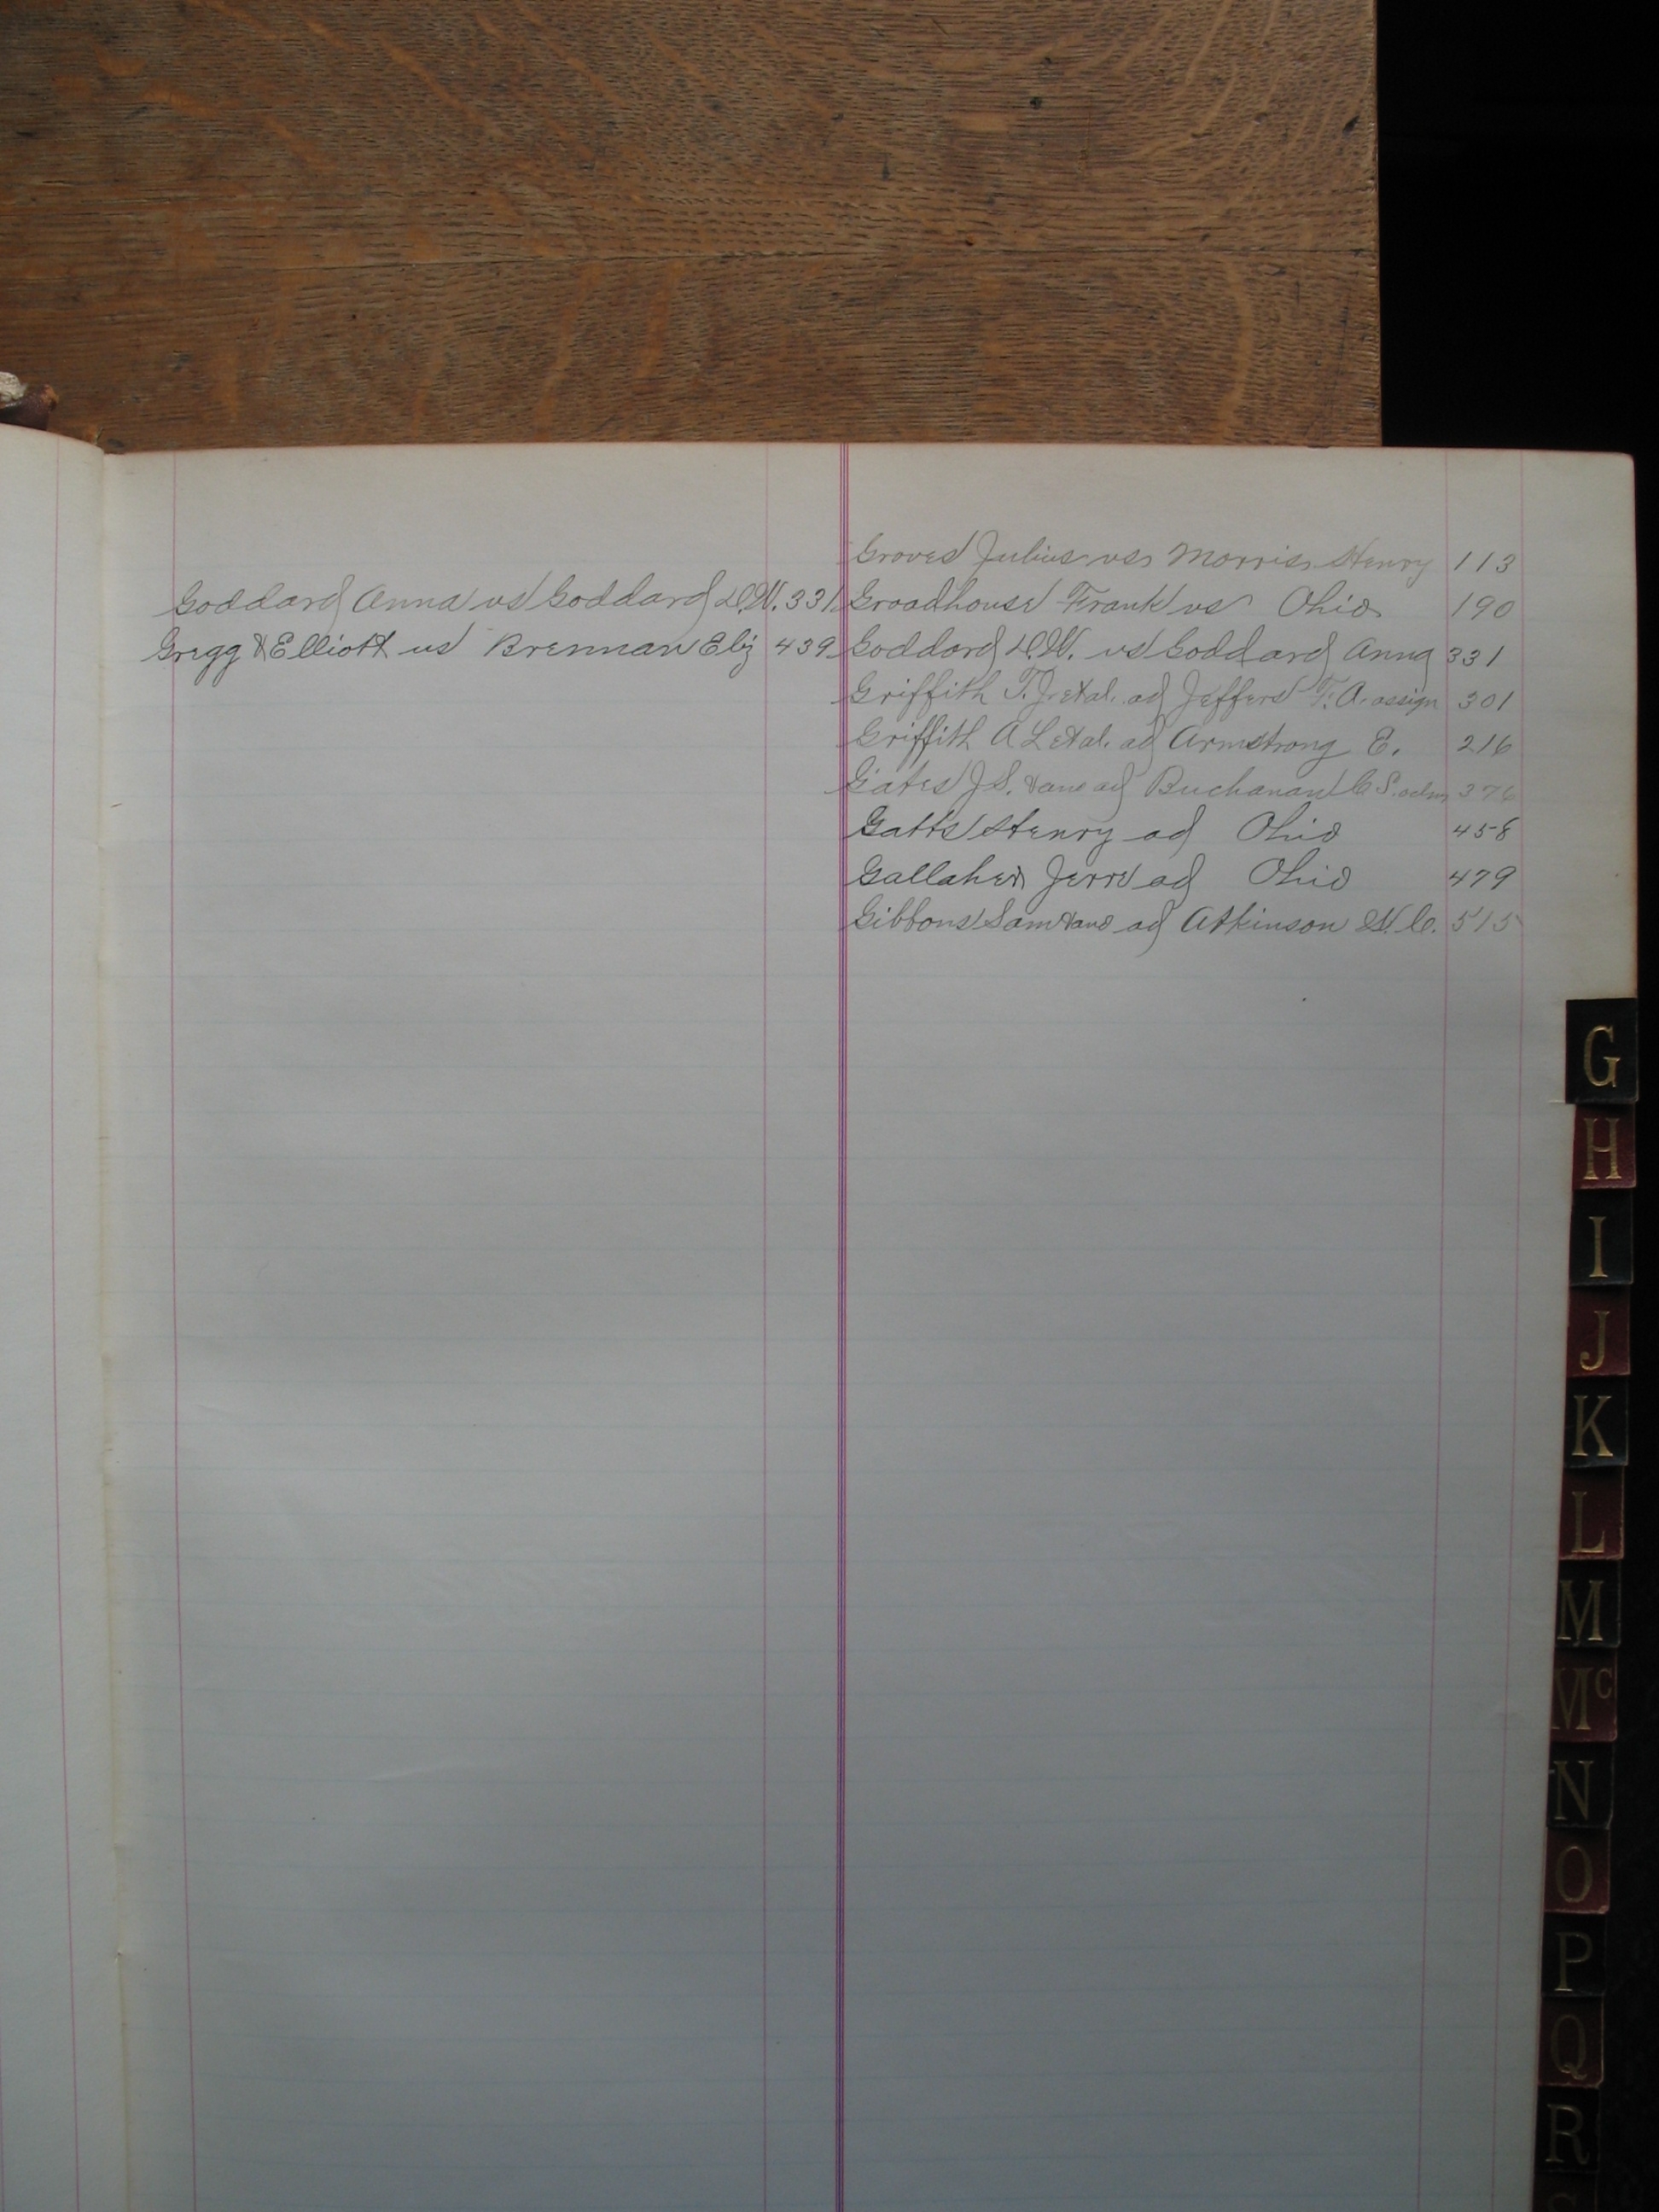 Goddard Anna vs Goddard D.W. 331
Gregg & Elliott vs Brennan Eliz 439
Groves Julius vs Morris Henry 113
Groadhouse Frank vs Ohio 190
Goddard D.W. vs Goddard Anna 331
Griffith T.J. et al. ad Jeffers T. A. assign 301
Griffith A L et al. ad Armstrong E. 216
Gates J S. & ano ad Buchanan C S. adm 376
Gatts Henry ad Ohio 458
Gallaher Jerre ad Ohio 479
Gibbons Sam & ano ad Atkinson W. C. 515
G
H
I
J
K
L
M
Mc
N
O
P
Q
R